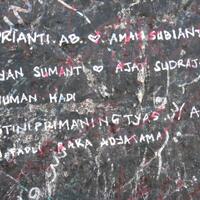 RIANTI. AB. ♡ AMAN SUBIANT
YAN SUMANTI ♡ AJAT SUDRAJA
NUMAN HADI
TINI PRIMANING TYAS
RAKA ADJATAMA